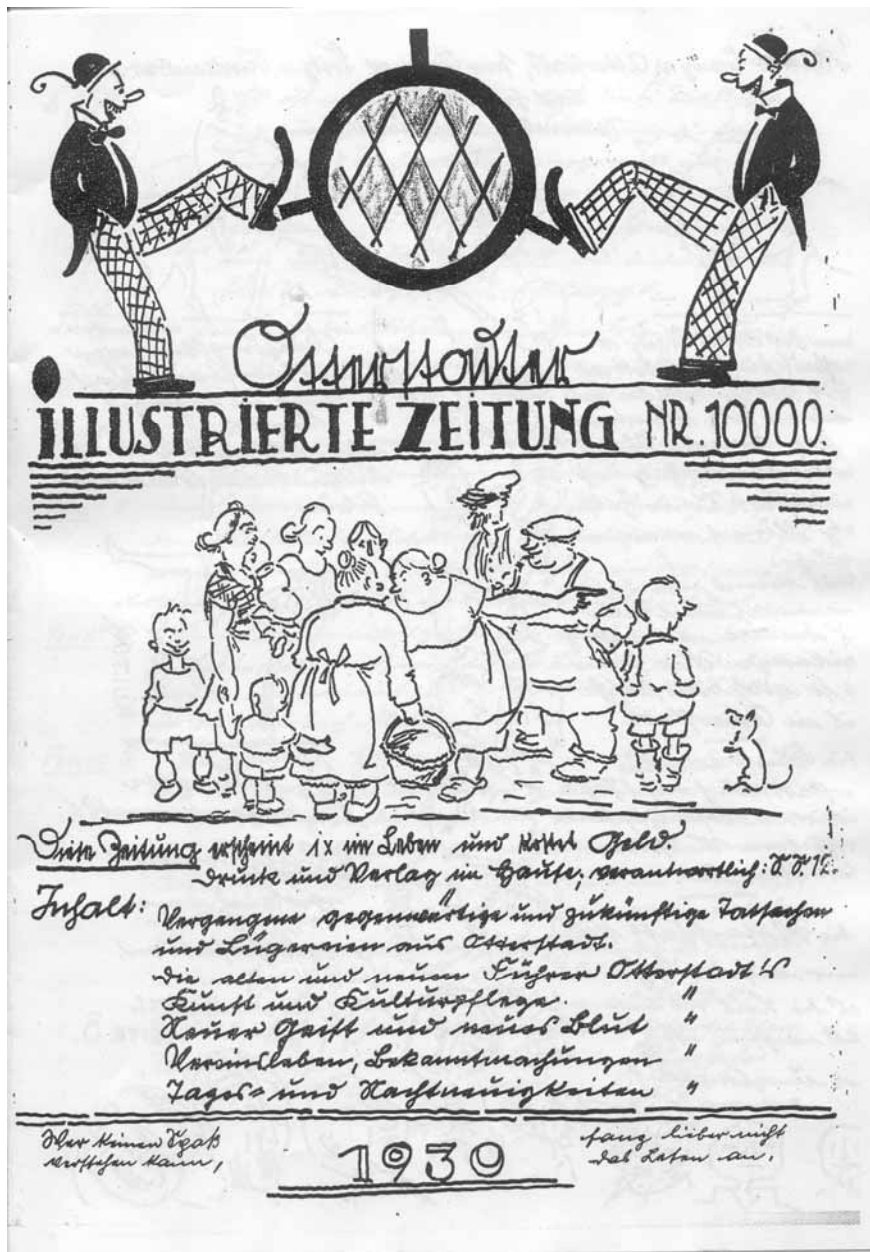 Otterstadter
ILLUSTRIERTE ZEITUNG NR. 10000.
Diese Zeitung erscheint 1x im Leben und kostet Geld.
Druck und Verlag im Hause, verantwortlich: S. S. 12.
Inhalt: Vergangene gegenwärtige und zukünftige Tatsachen
und Lügereien aus Otterstadt.
Die alten und neuen Führer Otterstadt's
Kunst und Kulturpflege. "
Neuer Geist und neues Blut "
Vereinsleben, Bekanntmachungen "
Tages- und Nachtneuigkeiten "
Wer keinen Spaß
verstehen kann,
1930
fang lieber nicht
das Lesen an.